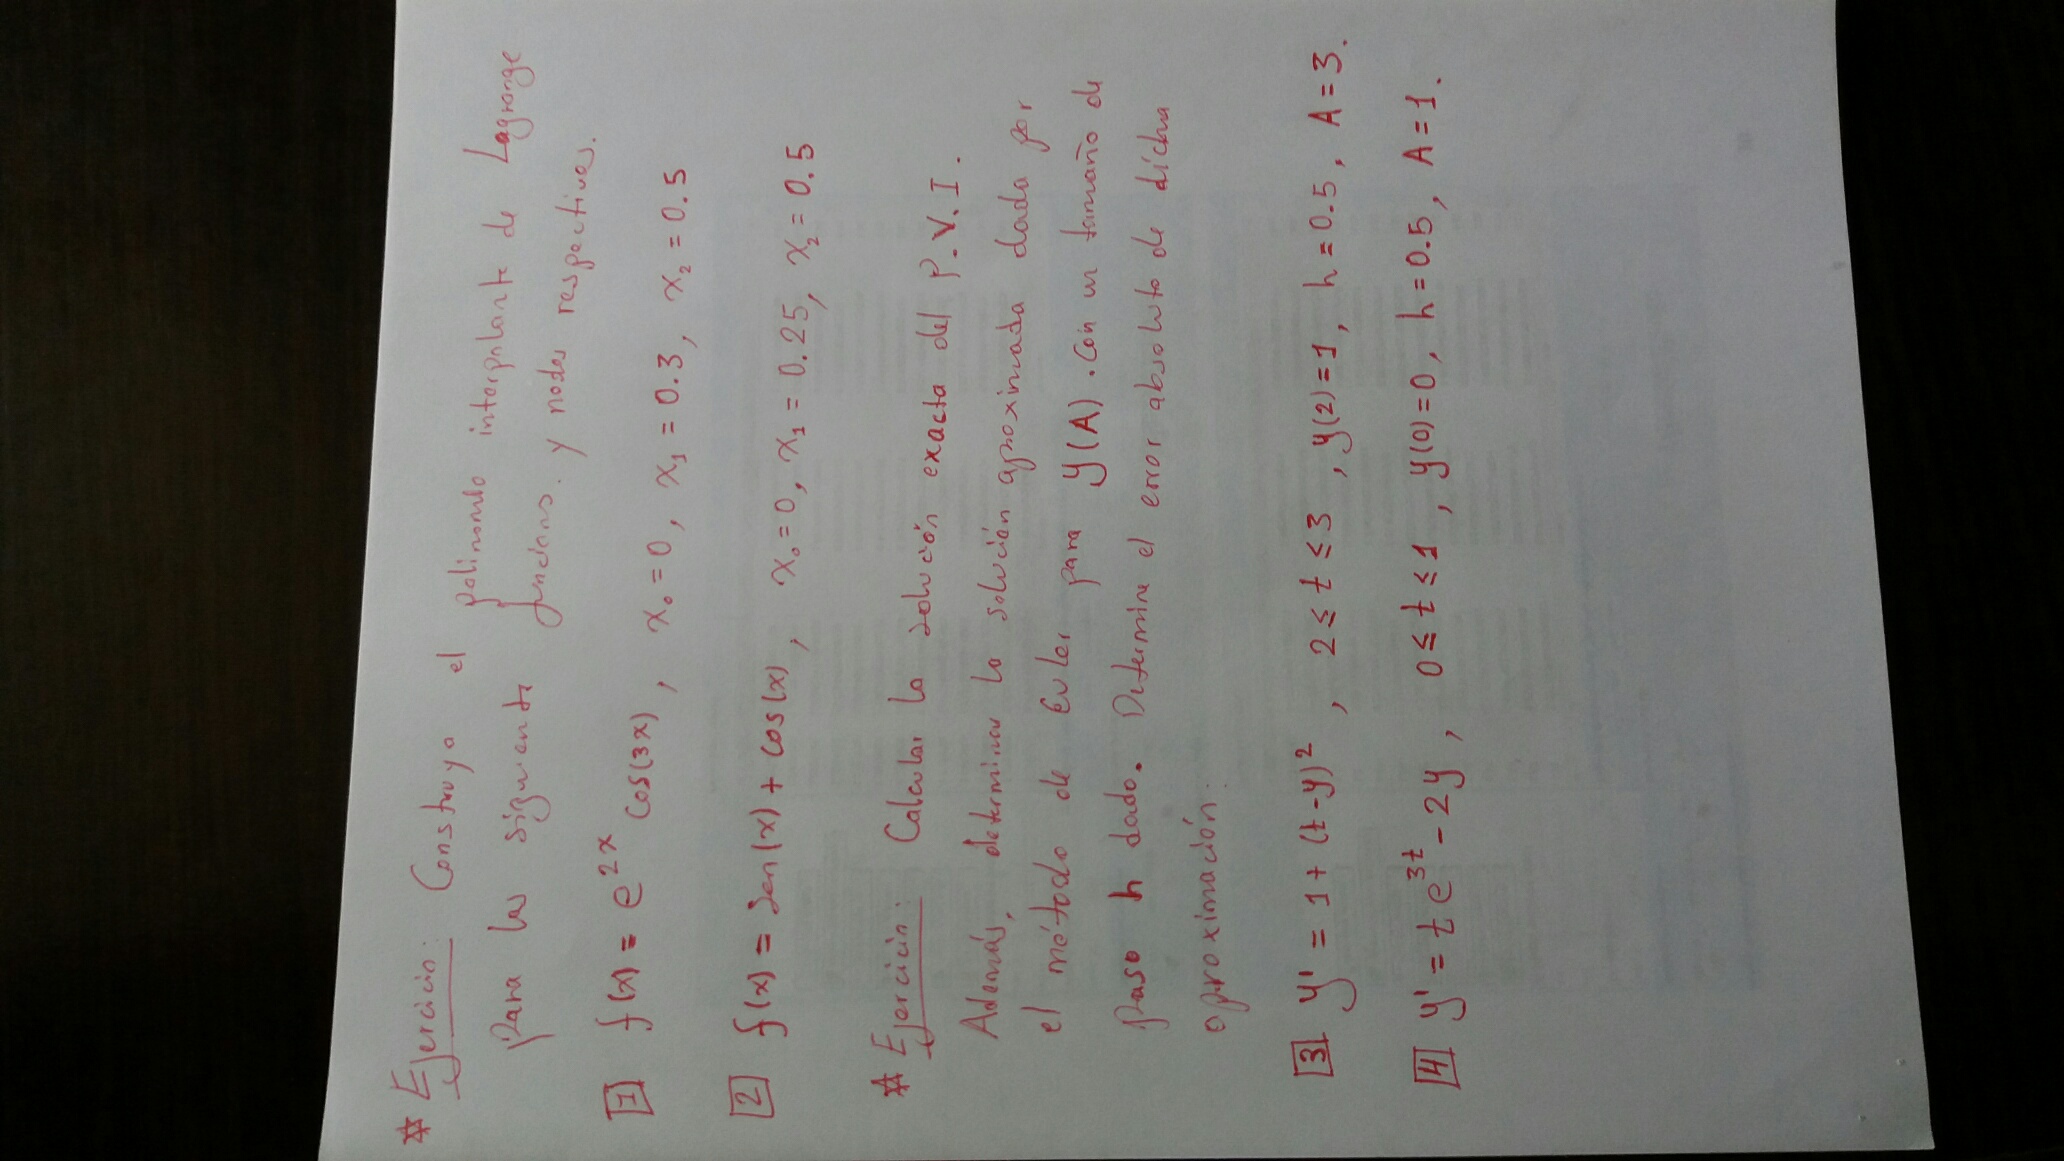 * Ejercicio: Construya el polinomio interpolante de Lagrange
Para las siguients funcions. y nodos respectivos.
1 f(x) = e^{2x} cos(3x), x₀ = 0, x₁ = 0.3, x₂ = 0.5
2 f(x) = sen(x) + cos(x), x₀ = 0, x₁ = 0.25, x₂ = 0.5
* Ejercicio: Calcular la solución exacta del P.V.I.
Además, determinar la solución aproximada dada por
el método de Euler para y(A). Con un tamaño de
paso h dado. Determine el error absoluto de dicha
aproximación.
3 y' = 1 + (t-y)², 2 ≤ t ≤ 3, y(2) = 1, h = 0.5, A = 3.
4 y' = t e^{3t} - 2y, 0 ≤ t ≤ 1, y(0) = 0, h = 0.5, A = 1.